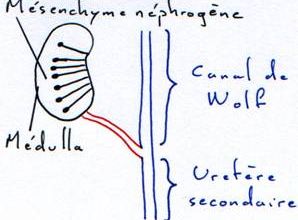 Mésenchyme néphrogène
Canal de
Wolf
Médulla
Uretère
secondaire